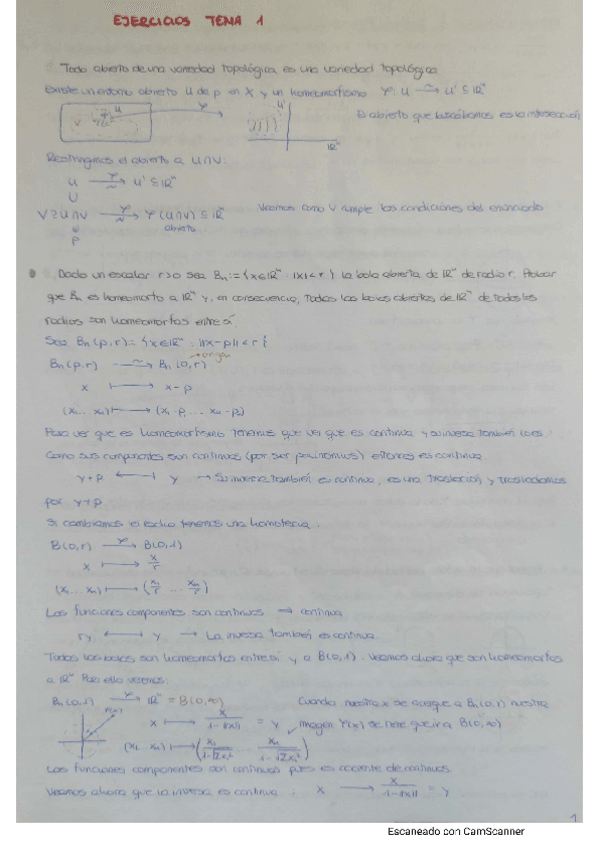 EJERCICIOS TEMA 1
Todo abierto de una variedad topológica es una variedad topológica
Existe un entorno abierto U de p en X y un homeomorfismo φ: U ⥲ U' ⊆ ℝⁿ
U φ U' El abierto que buscábamos es la intersección
V ℝⁿ
Restringimos el abierto a U∩V:
U φ⟶ U' ⊆ ℝⁿ
∪
V ⊇ U∩V φ⟶ φ(U∩V) ⊆ ℝⁿ Veamos como V cumple las condiciones del enunciado
abierto
p
Dado un escalar r>0 sea Bn := {x∈ℝⁿ : |x|<r} la bola abierta de ℝⁿ de radio r. Probar
que Bn es homeomorfo a ℝⁿ y, en consecuencia, todas las bolas abiertas de ℝⁿ de todos los
radios son homeomorfas entre sí.
Sea Bn(p,r) = {x∈ℝⁿ : ||x-p|| < r}
→ origen
Bn(p,r) ⥲ Bn(0,r)
x ⟼ x-p
(x₁...xₙ) ⟼ (x₁-p, ... xₙ-p)
Para ver que es homeomorfismo tenemos que ver que es continua y su inversa también lo es.
Como sus componentes son continuas (por ser polinomios) entonces es continua
y+p ⟵ y → Su inversa también es continua, es una traslación y trasladamos
por y+p
Si cambiamos el radio tenemos una homotecia:
B(0,r) φ⟶ B(0,1)
x ⟼ x/r
(x₁...xₙ) ⟼ (x₁/r ... xₙ/r)
Las funciones componentes son continuas ⟹ continua
ry ⟵ y → La inversa también es continua.
Todas las bolas son homeomorfas entre sí y a B(0,1). Veamos ahora que son homeomorfas
a ℝⁿ. Para ello veremos:
Bn(0,1) φ⟶ ℝⁿ = B(0,∞) Cuando nuestra x se acerque a Bn(0,1) nuestra
x ⟼ x/(1-||x||) = y imagen φ(x) se tiene que ir a B(0,∞)
(x₁...xₙ) ⟼ (x₁/(1-√Σxᵢ²) ... xₙ/(1-√Σxᵢ²))
Las funciones componentes son continuas pues es cociente de continuas.
Veamos ahora que la inversa es continua: x ⟶ x/(1-||x||) = y
1
Escaneado con CamScanner